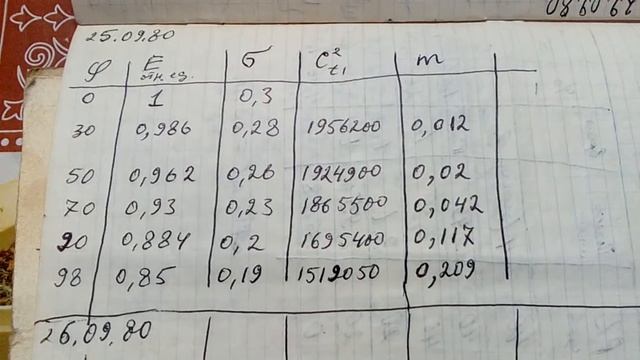 25.09.80
φ E отн.ед. σ C²t₁ m
0 1 0,3
30 0,986 0,28 1956200 0,012
50 0,962 0,26 1924900 0,02
70 0,93 0,23 1865500 0,042
90 0,884 0,2 1695400 0,117
98 0,85 0,19 1519050 0,209
26.09.80